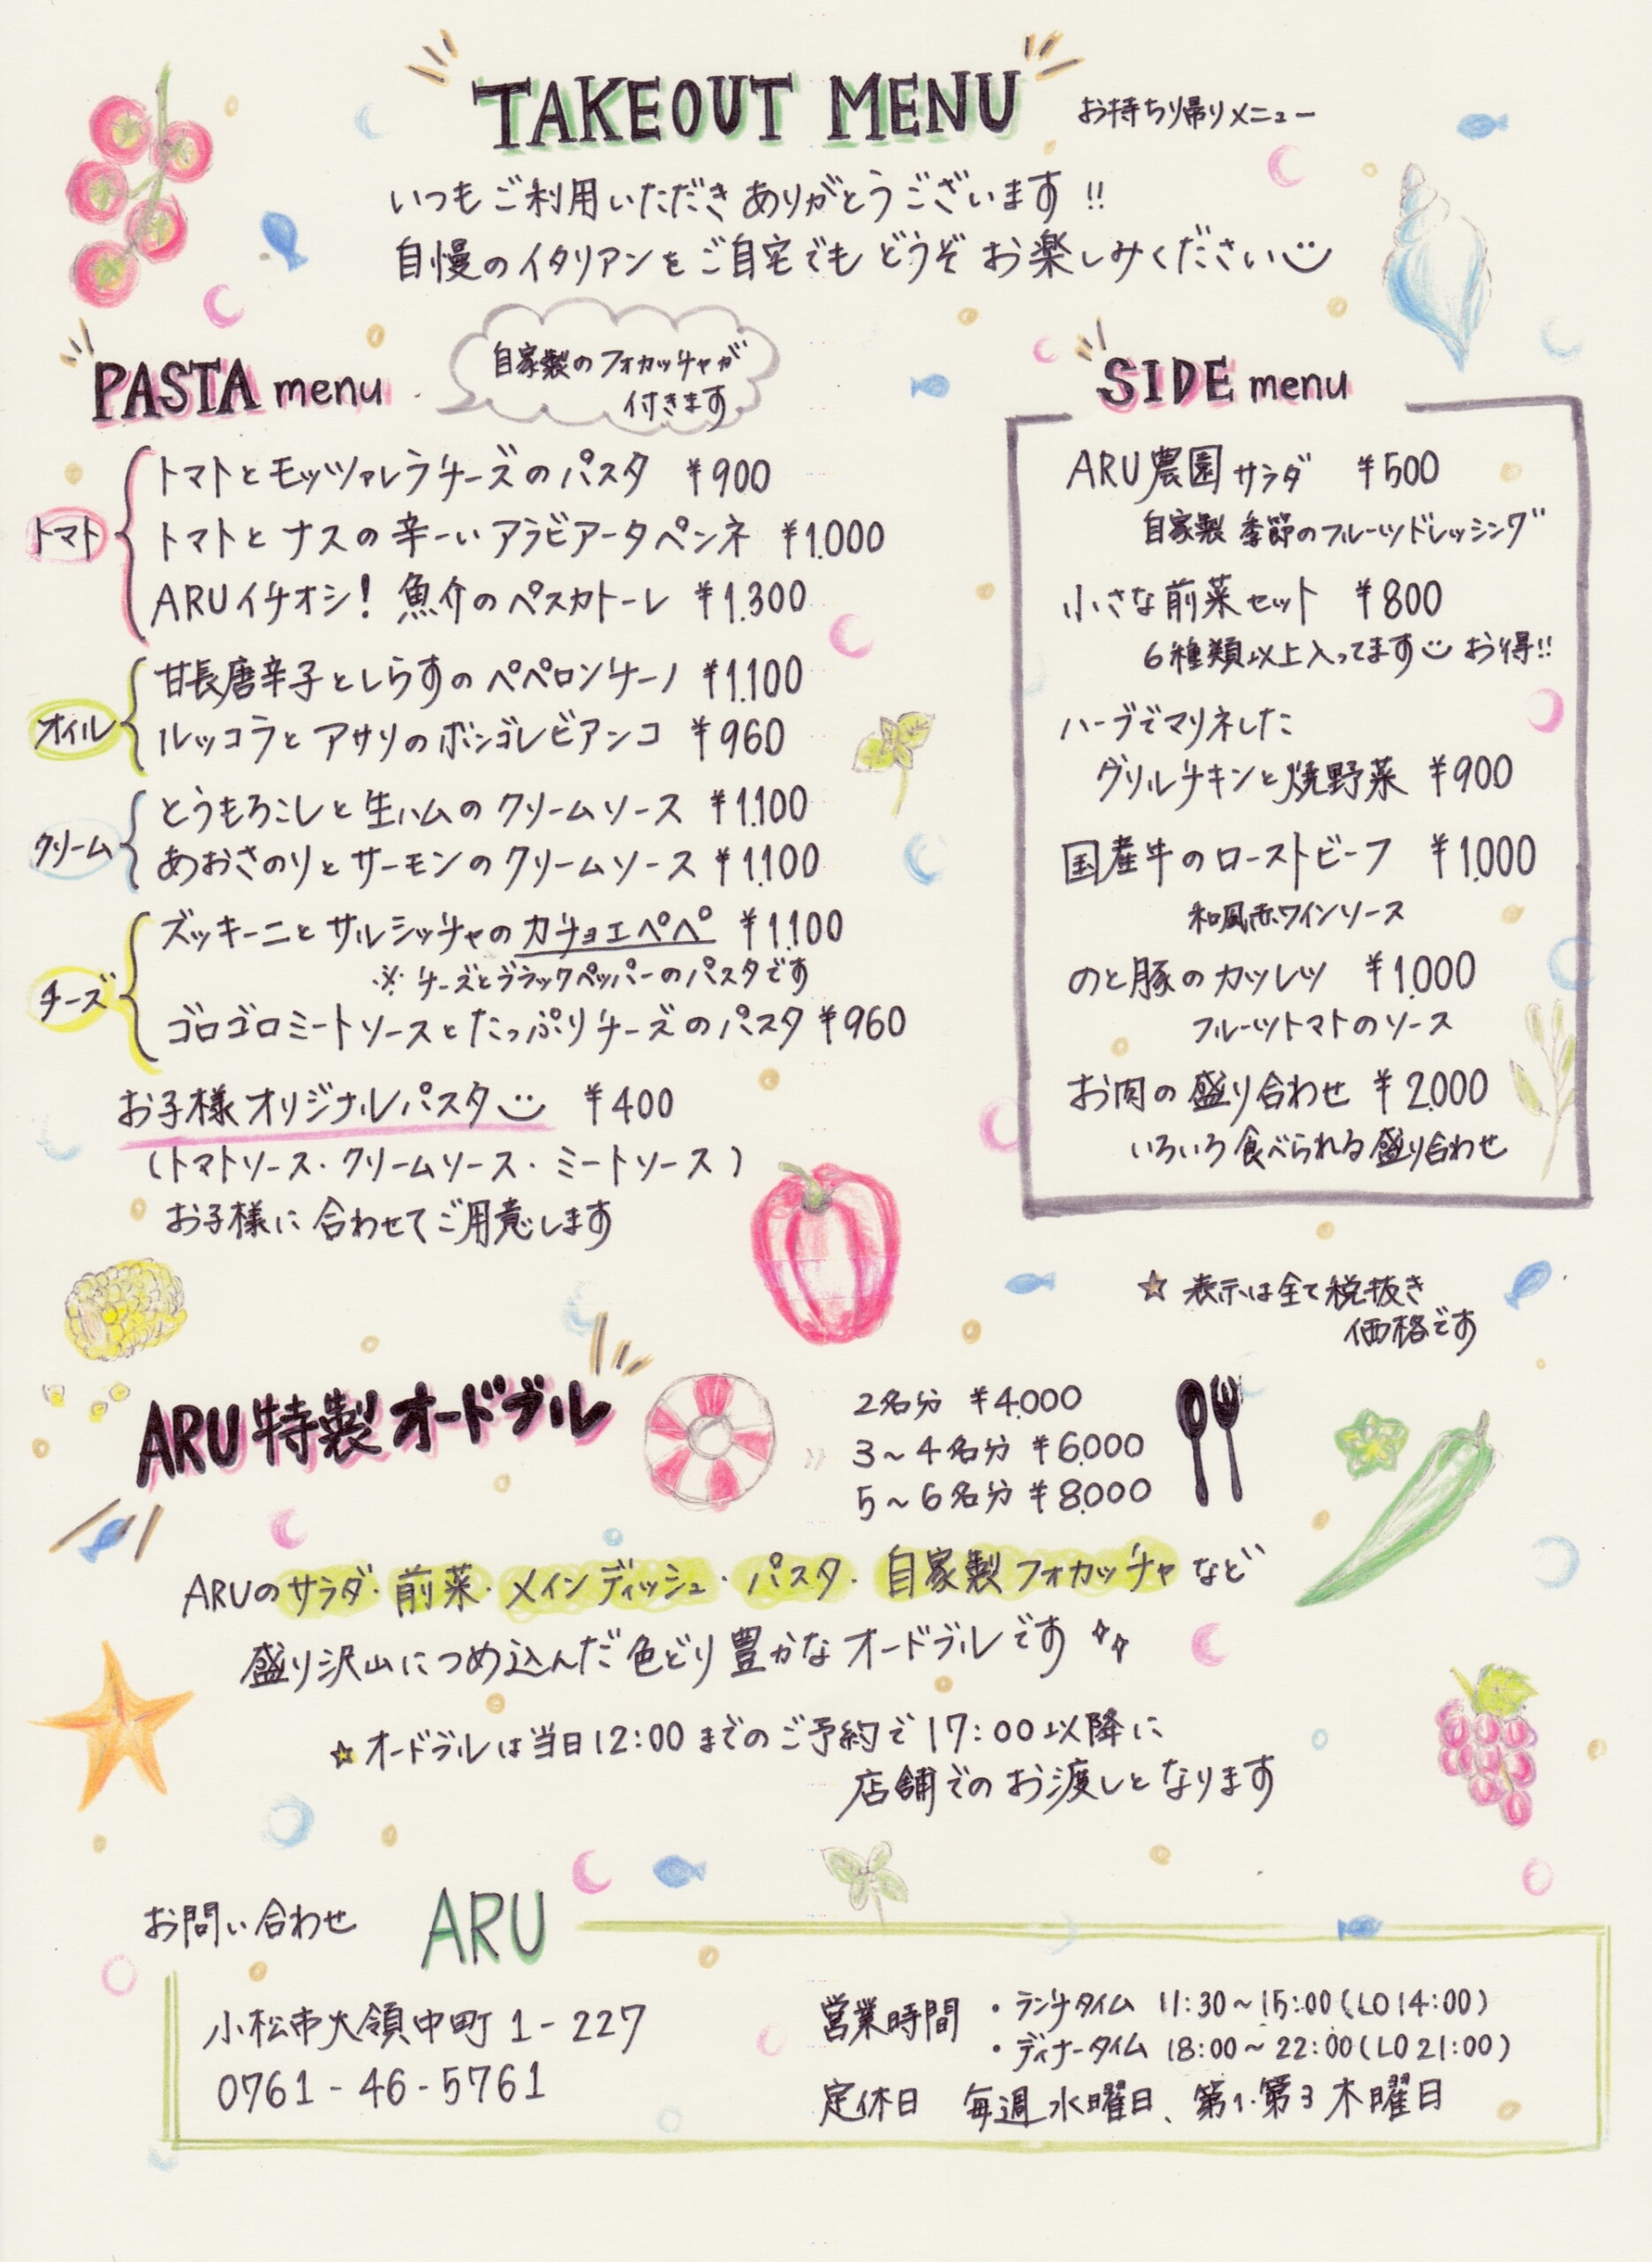 TAKEOUT MENU お持ち帰りメニュー
いつもご利用いただきありがとうございます!!
自慢のイタリアンをご自宅でもどうぞお楽しみください
PASTA menu
自家製のフォカッチャが
付きます
トマト
トマトとモッツァレラチーズのパスタ ¥900
トマトとナスの辛ーいアラビアータペンネ ¥1.000
ARUイチオシ! 魚介のペスカトーレ ¥1.300
オイル
甘長唐辛子としらすのペペロンチーノ ¥1.100
ルッコラとアサリのボンゴレビアンコ ¥960
クリーム
とうもろこしと生ハムのクリームソース ¥1.100
あおさのりとサーモンのクリームソース ¥1.100
チーズ
ズッキーニとサルシッチャのカチョエペペ ¥1.100
※チーズとブラックペッパーのパスタです
ゴロゴロミートソースとたっぷりチーズのパスタ ¥960
お子様オリジナルパスタ ¥400
(トマトソース・クリームソース・ミートソース)
お子様に合わせてご用意します
SIDE menu
ARU農園サラダ ¥500
自家製 季節のフルーツドレッシング
小さな前菜セット ¥800
6種類以上入ってます お得!!
ハーブでマリネした
グリルチキンと焼野菜 ¥900
国産牛のローストビーフ ¥1.000
和風赤ワインソース
のと豚のカツレツ ¥1.000
フルーツトマトのソース
お肉の盛り合わせ ¥2.000
いろいろ食べられる盛り合わせ
☆ 表示は全て税抜き
価格です
ARU特製オードブル
2名分 ¥4.000
3~4名分 ¥6.000
5~6名分 ¥8.000
ARUのサラダ・前菜・メインディッシュ・パスタ・自家製フォカッチャなど
盛り沢山につめ込んだ色どり豊かなオードブルです
☆オードブルは当日12:00までのご予約で17:00以降に
店舗でのお渡しとなります
お問い合わせ ARU
小松市大領中町1-227
0761-46-5761
営業時間 ・ランチタイム 11:30~15:00(LO14:00)
・ディナータイム 18:00~22:00(LO21:00)
定休日 毎週水曜日、第1・第3木曜日